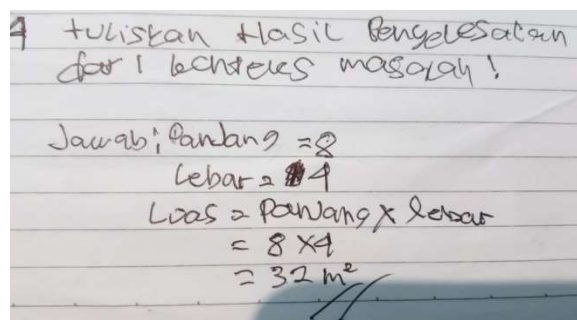 4 tuliskan Hasil Penyelesaian
dari konteks masalah!
Jawab: Panjang = 8
Lebar = 4
Luas = Panjang x lebar
= 8 x 4
= 32 m²